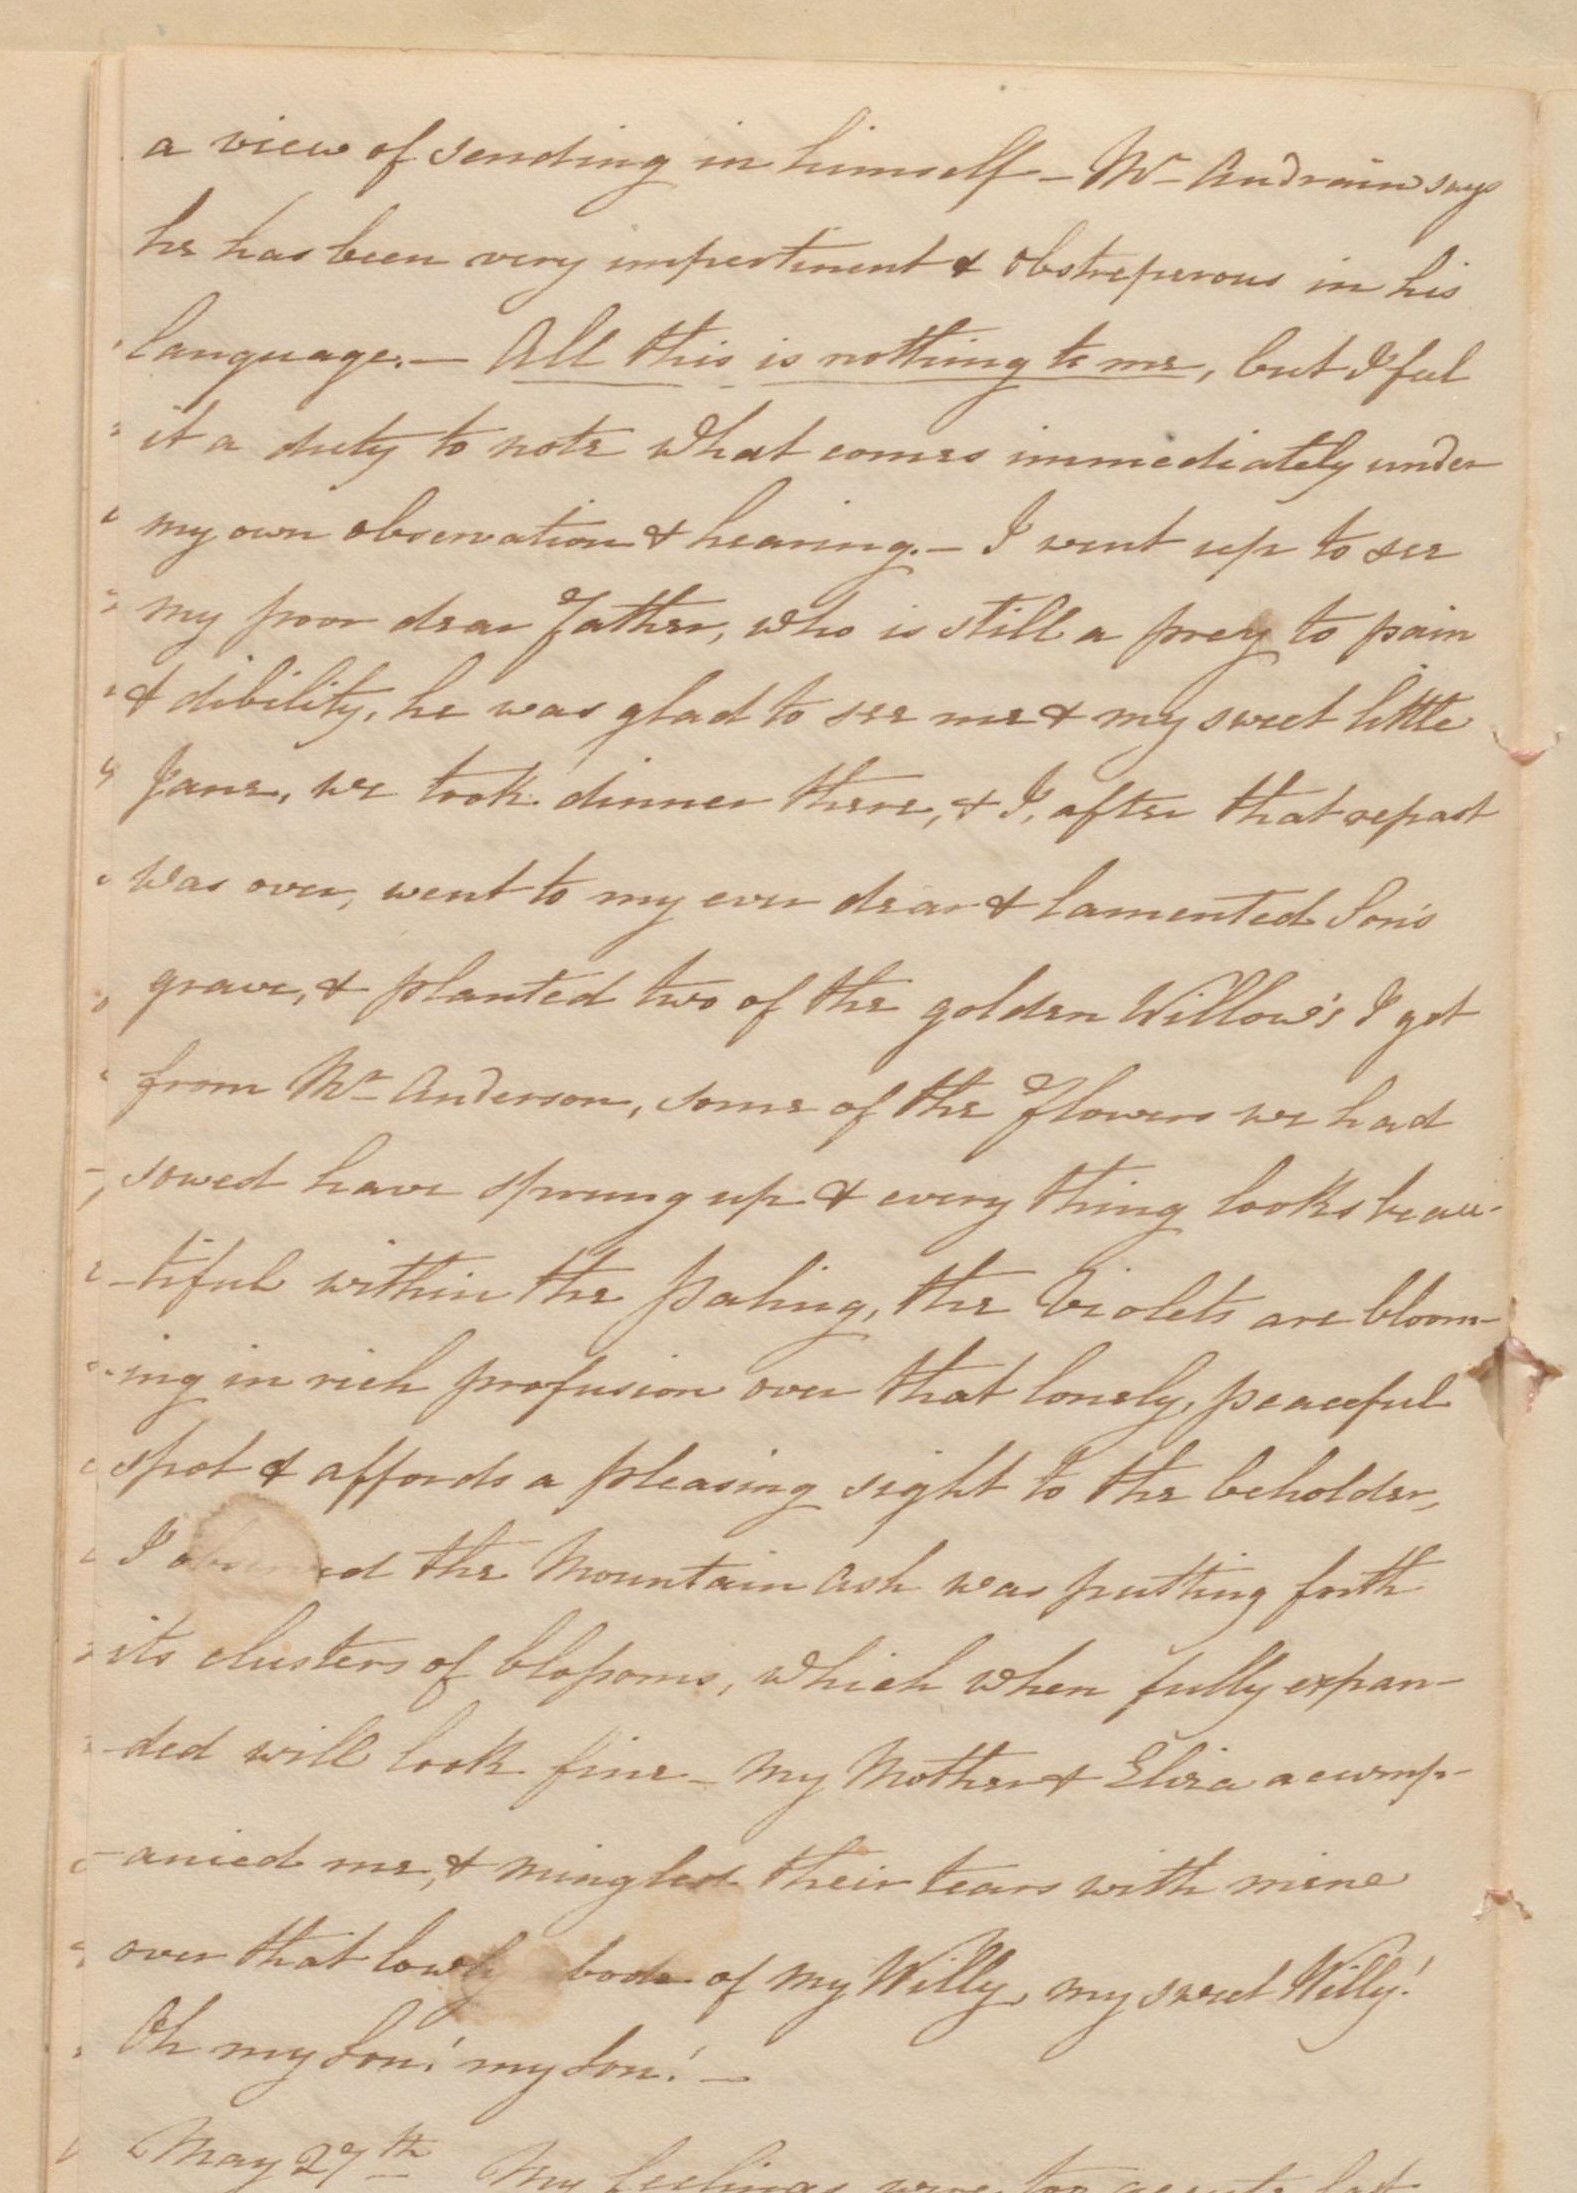 a view of sending in himself – Mr Audrain says
he has been very impertinent & obstreperous in his
language. – All this is nothing to me, but I feel
it a duty to note what comes immediately under
my own observation & hearing. – I went up to see
my poor dear Father, who is still a prey to pain
& dibility, he was glad to see me & my sweet little
Jane, we took dinner there, & I, after that repast
was over, went to my ever dear & lamented Son's
grave, & planted two of the golden Willow's I got
from Mr Anderson, some of the Flowers we had
sowed have sprung up & every thing looks beau-
-tiful within the paling, the Violets are bloom-
-ing in rich profusion over that lonely, peaceful
spot & affords a pleasing sight to the beholder,
I observed the Mountain Ash was putting forth
its clusters of blossoms, which when fully expan-
-ded will look fine – My Mother & Eliza accomp-
-anied me, & mingled their tears with mine
over that lowly abode of my Willy, my sweet Willy!
Oh my Son! my Son! –
May 27th My feelings were too acute last